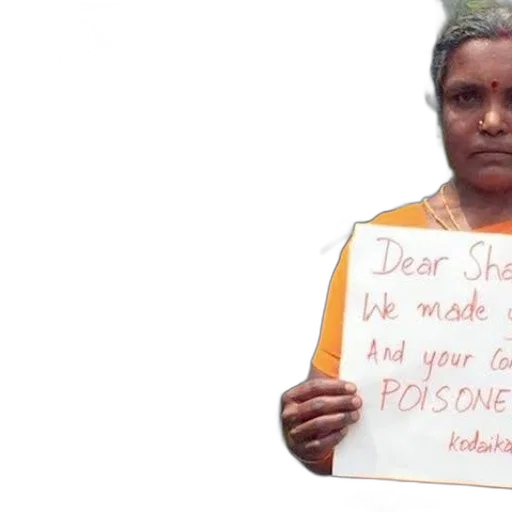 Dear Sha
We made y
And your Co
POISONE
Kodaika